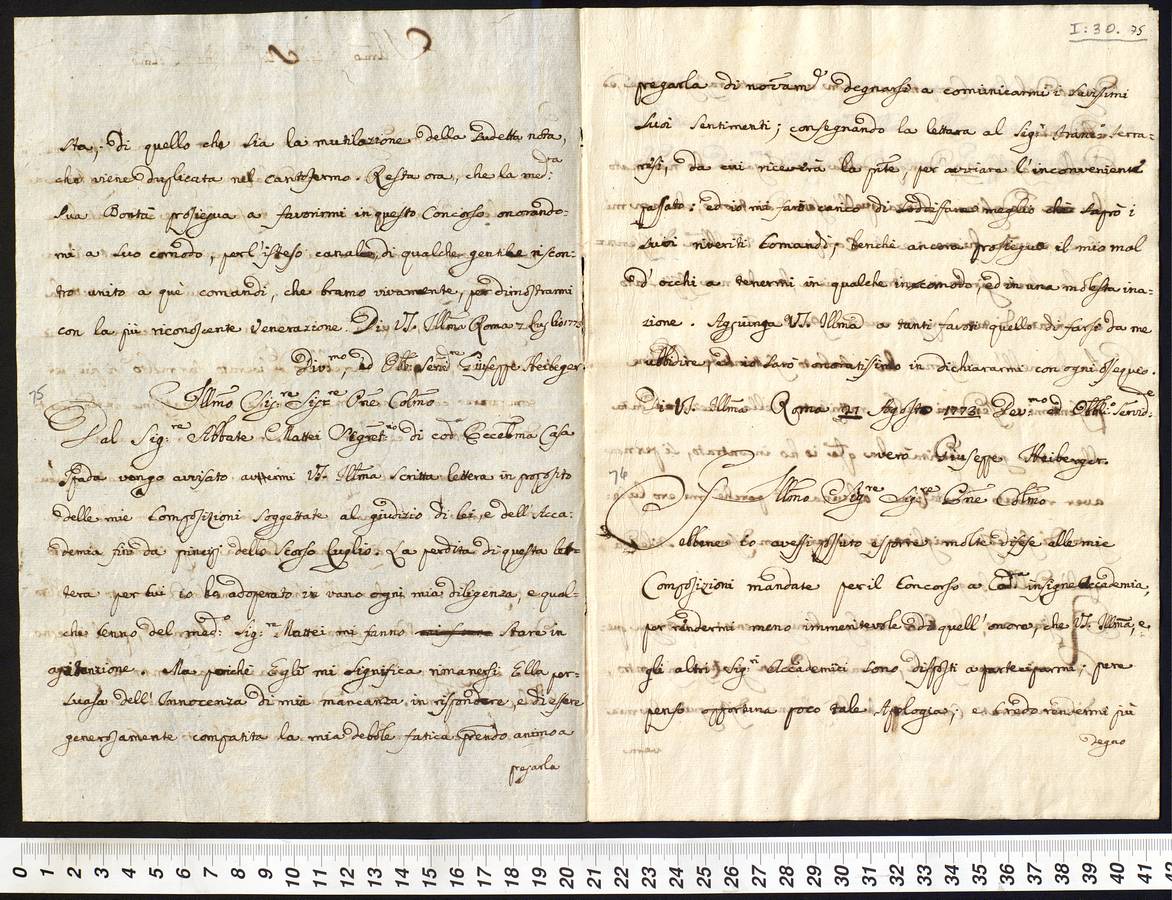 sta, di quello che sia la mutilazione della sudetta nota,
che viene duplicata nel cantofermo. Resta ora, che la med:da
Sua Bontà prosiegua a favorirmi in questo Concorso onorando-
mi a suo comodo, per l'istesso canale, di qualche gentile riscon-
tro unito a què comandi, che bramo vivamente, per dimostrarmi
con la più riconoscente venerazione. Di VS. Illma Roma 7 Luglio 1773
Divmo, ed Obb Servre Giuseppe Heiberger
75
Illmo Sigre Sigre Pne Colmo
Dal Sigre Abbate Mattei Segretrio di cod Eccellma Casa
Spada vengo avvisato avermi VS. Illma scritta lettera in proposito
delle mie Composizioni soggettate al giudizio di lei, e dell'Acca-
demia fin da principj dello scorso Luglio. La perdita di questa let-
tera per cui io ho adoperato in vano ogni mia diligenza, e qual-
che cenno del medo Sigre Mattei mi fanno stare in
agitazione. Ma poiché Egli mi significa rimanersi Ella per-
suasa dell'Innocenza di mia mancanza in rispondere, e di essere
generosamente compatita la mia debole fatica prendo animo a
pregarla
I:30. 75
pregarla di novamte degnarsi a comunicarmi i savissimi
suoi sentimenti; consegnando la lettera al Sigr Franco Ferra-
resi, da cui riceverà la pnte, per ovviare l'inconveniente
passato: ed io mi farò carico di soddisfare meglio che saprò i
suoi riveriti Comandi; benchè ancora prosiegue il mio mal
d'occhi a tenermi in qualche incomodo, ed in una molesta ina-
zione. Aggiunga VS. Illma a tanti favori quello di farsi da me
ubbidire, ed io sarò onoratissimo in dichiararmi con ogni ossequio.
Di VS. Illma Roma 21 Agosto 1773 Devmo ed Obblo Servide
vero Giuseppe Heiberger.
76
Illmo Sigre Sigre Pne Colmo
Sebbene Io avessi possuto esporre molte difese alle mie
Composizioni mandate per il Concorso a Codta insigne Accademia,
per rendermi meno immeritevole di quell'onore, che VS. Illma, e
gli altri Sigri Accademici sono disposti a parteciparmi; pure
penso opportuna poco tale Apologia; e credo rendermi più
degno